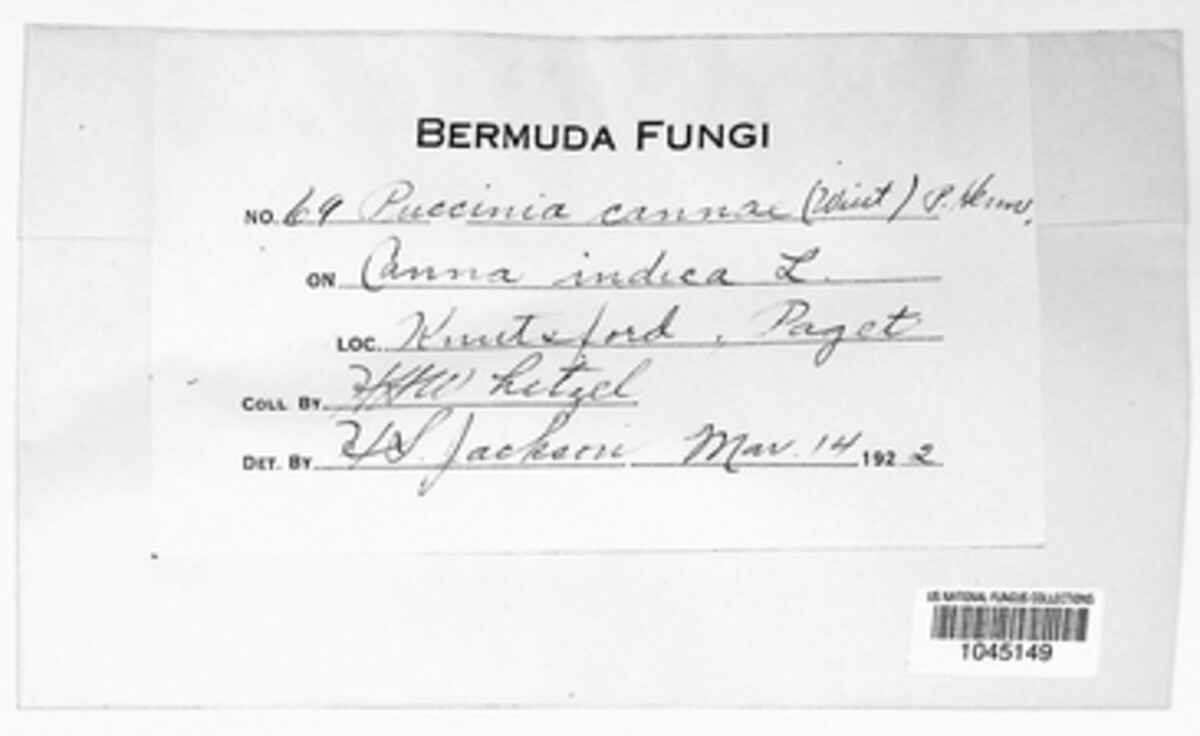 BERMUDA FUNGI
NO. 69 Puccinia cannae (Wint) P. Henn.
ON Canna indica L.
LOC. Knutsford, Paget
COLL BY HH Whetzel
DET. BY HS. Jackson Mar. 14 1922
US NATIONAL FUNGUS COLLECTIONS
1045149